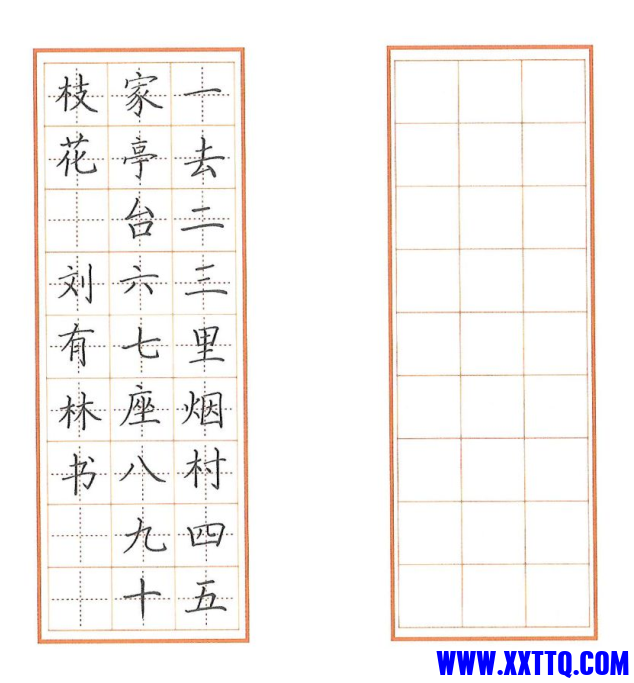 一去二三里烟村四五
家亭台六七座八九十
枝花 刘有林书
WWW.XXTTQ.COM